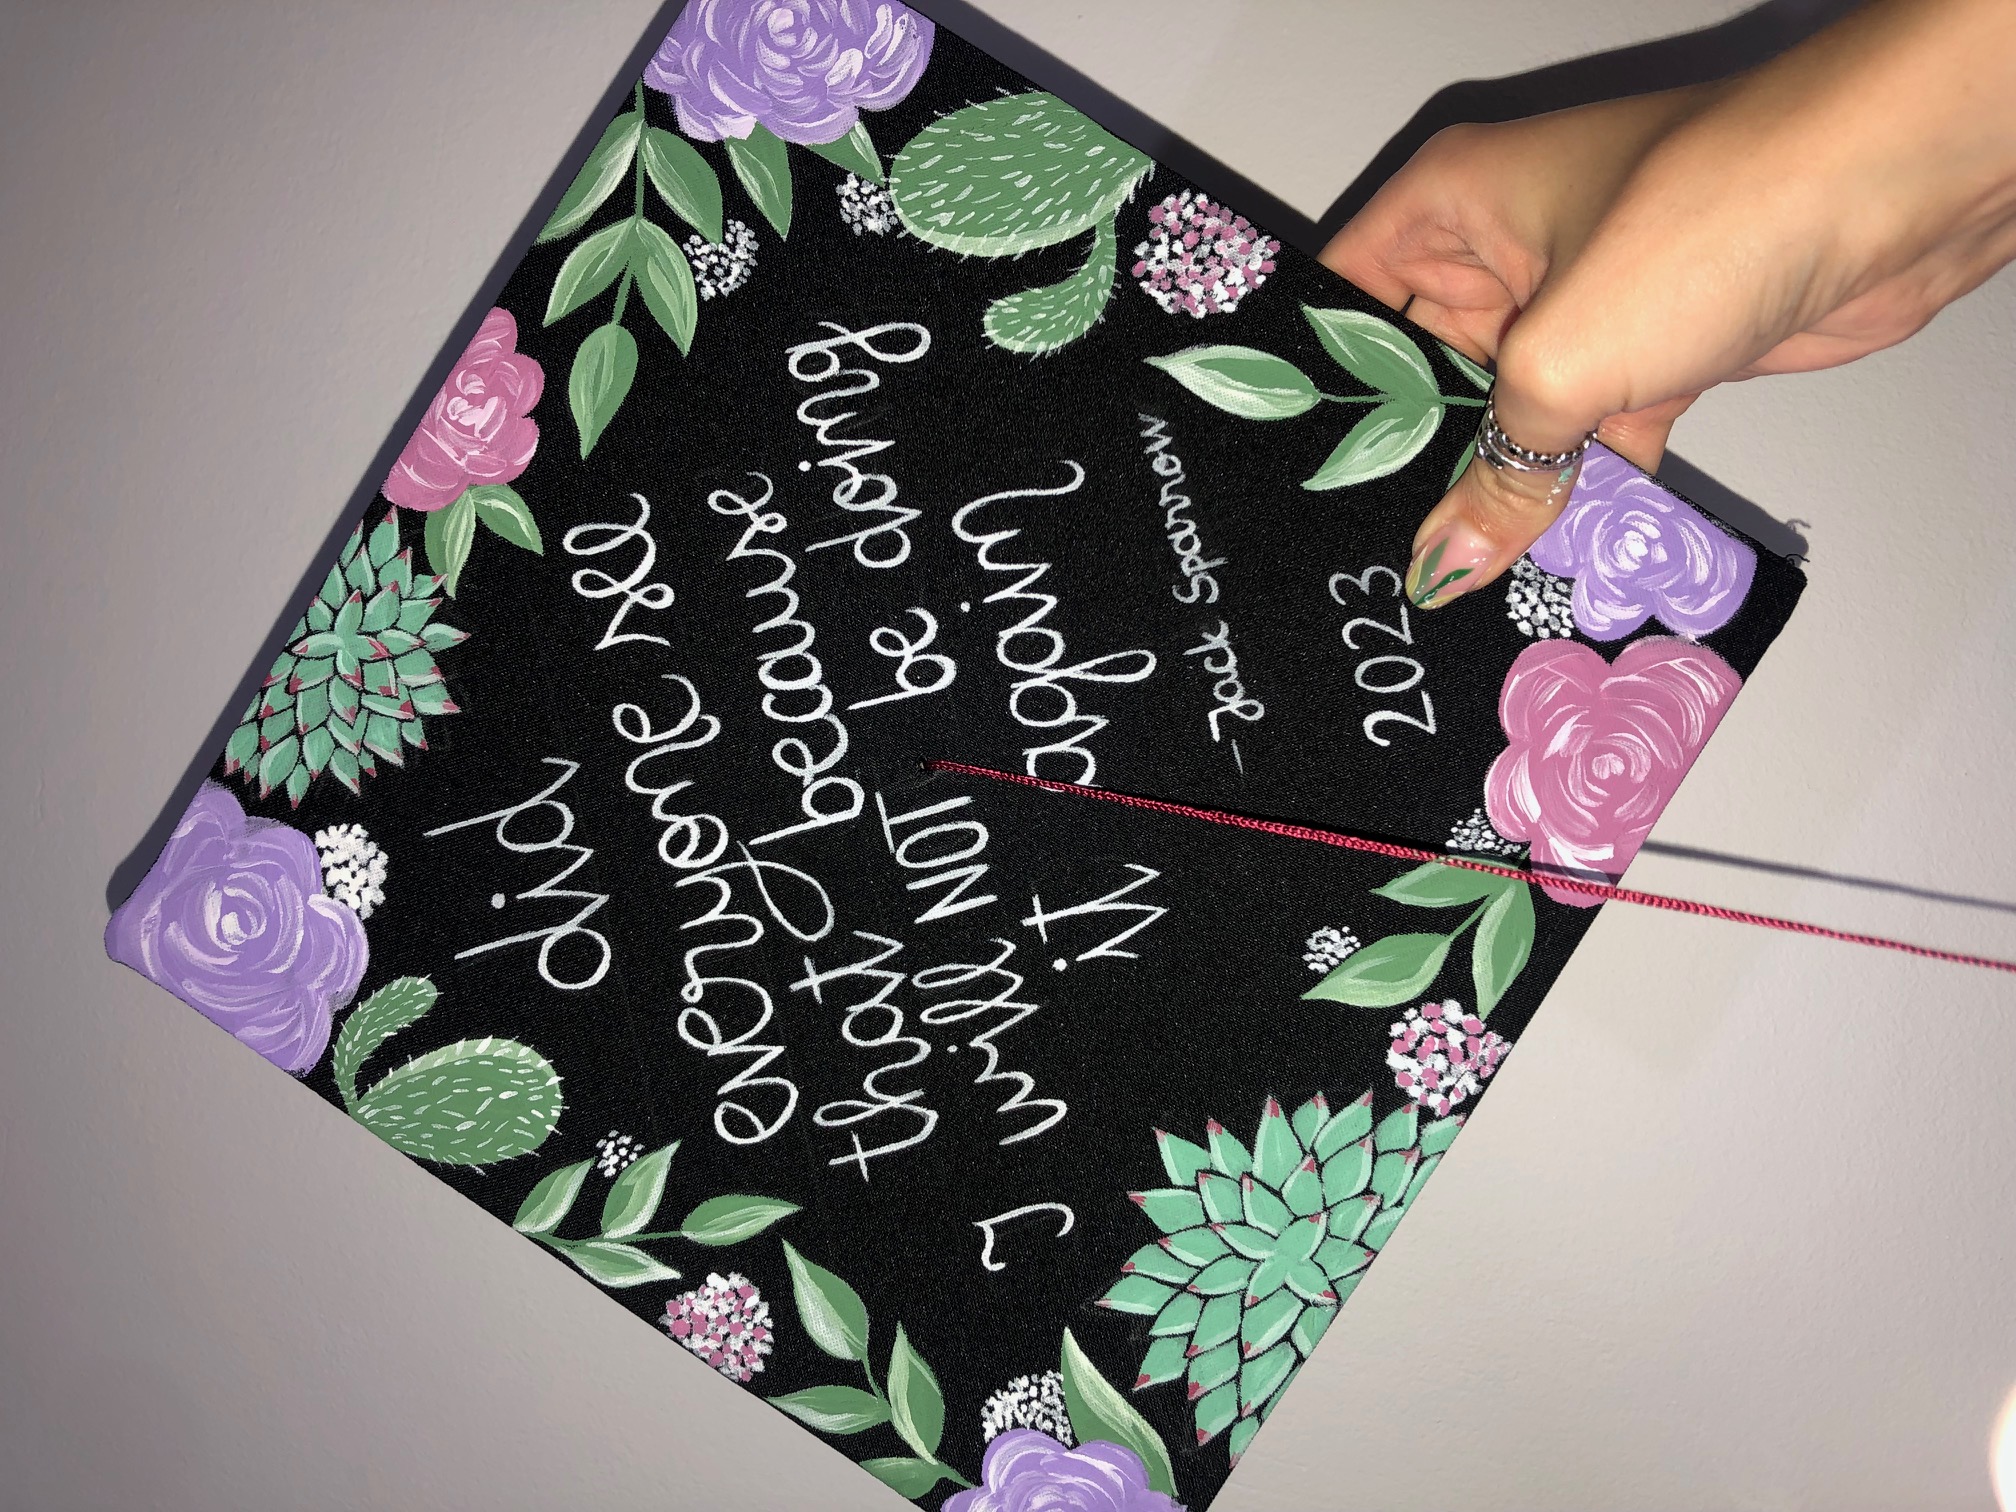 did
everyone see
that because
I will NOT be doing
it again
-Jack Sparrow
2023